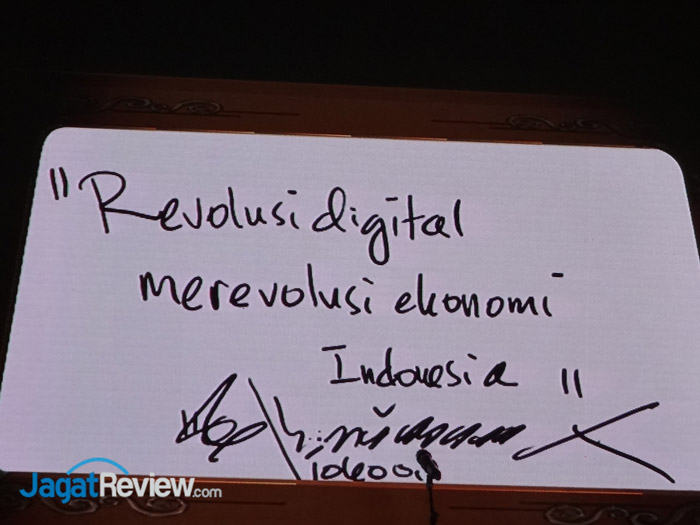 "Revolusi digital
merevolusi ekonomi
Indonesia"
JagatReview.com